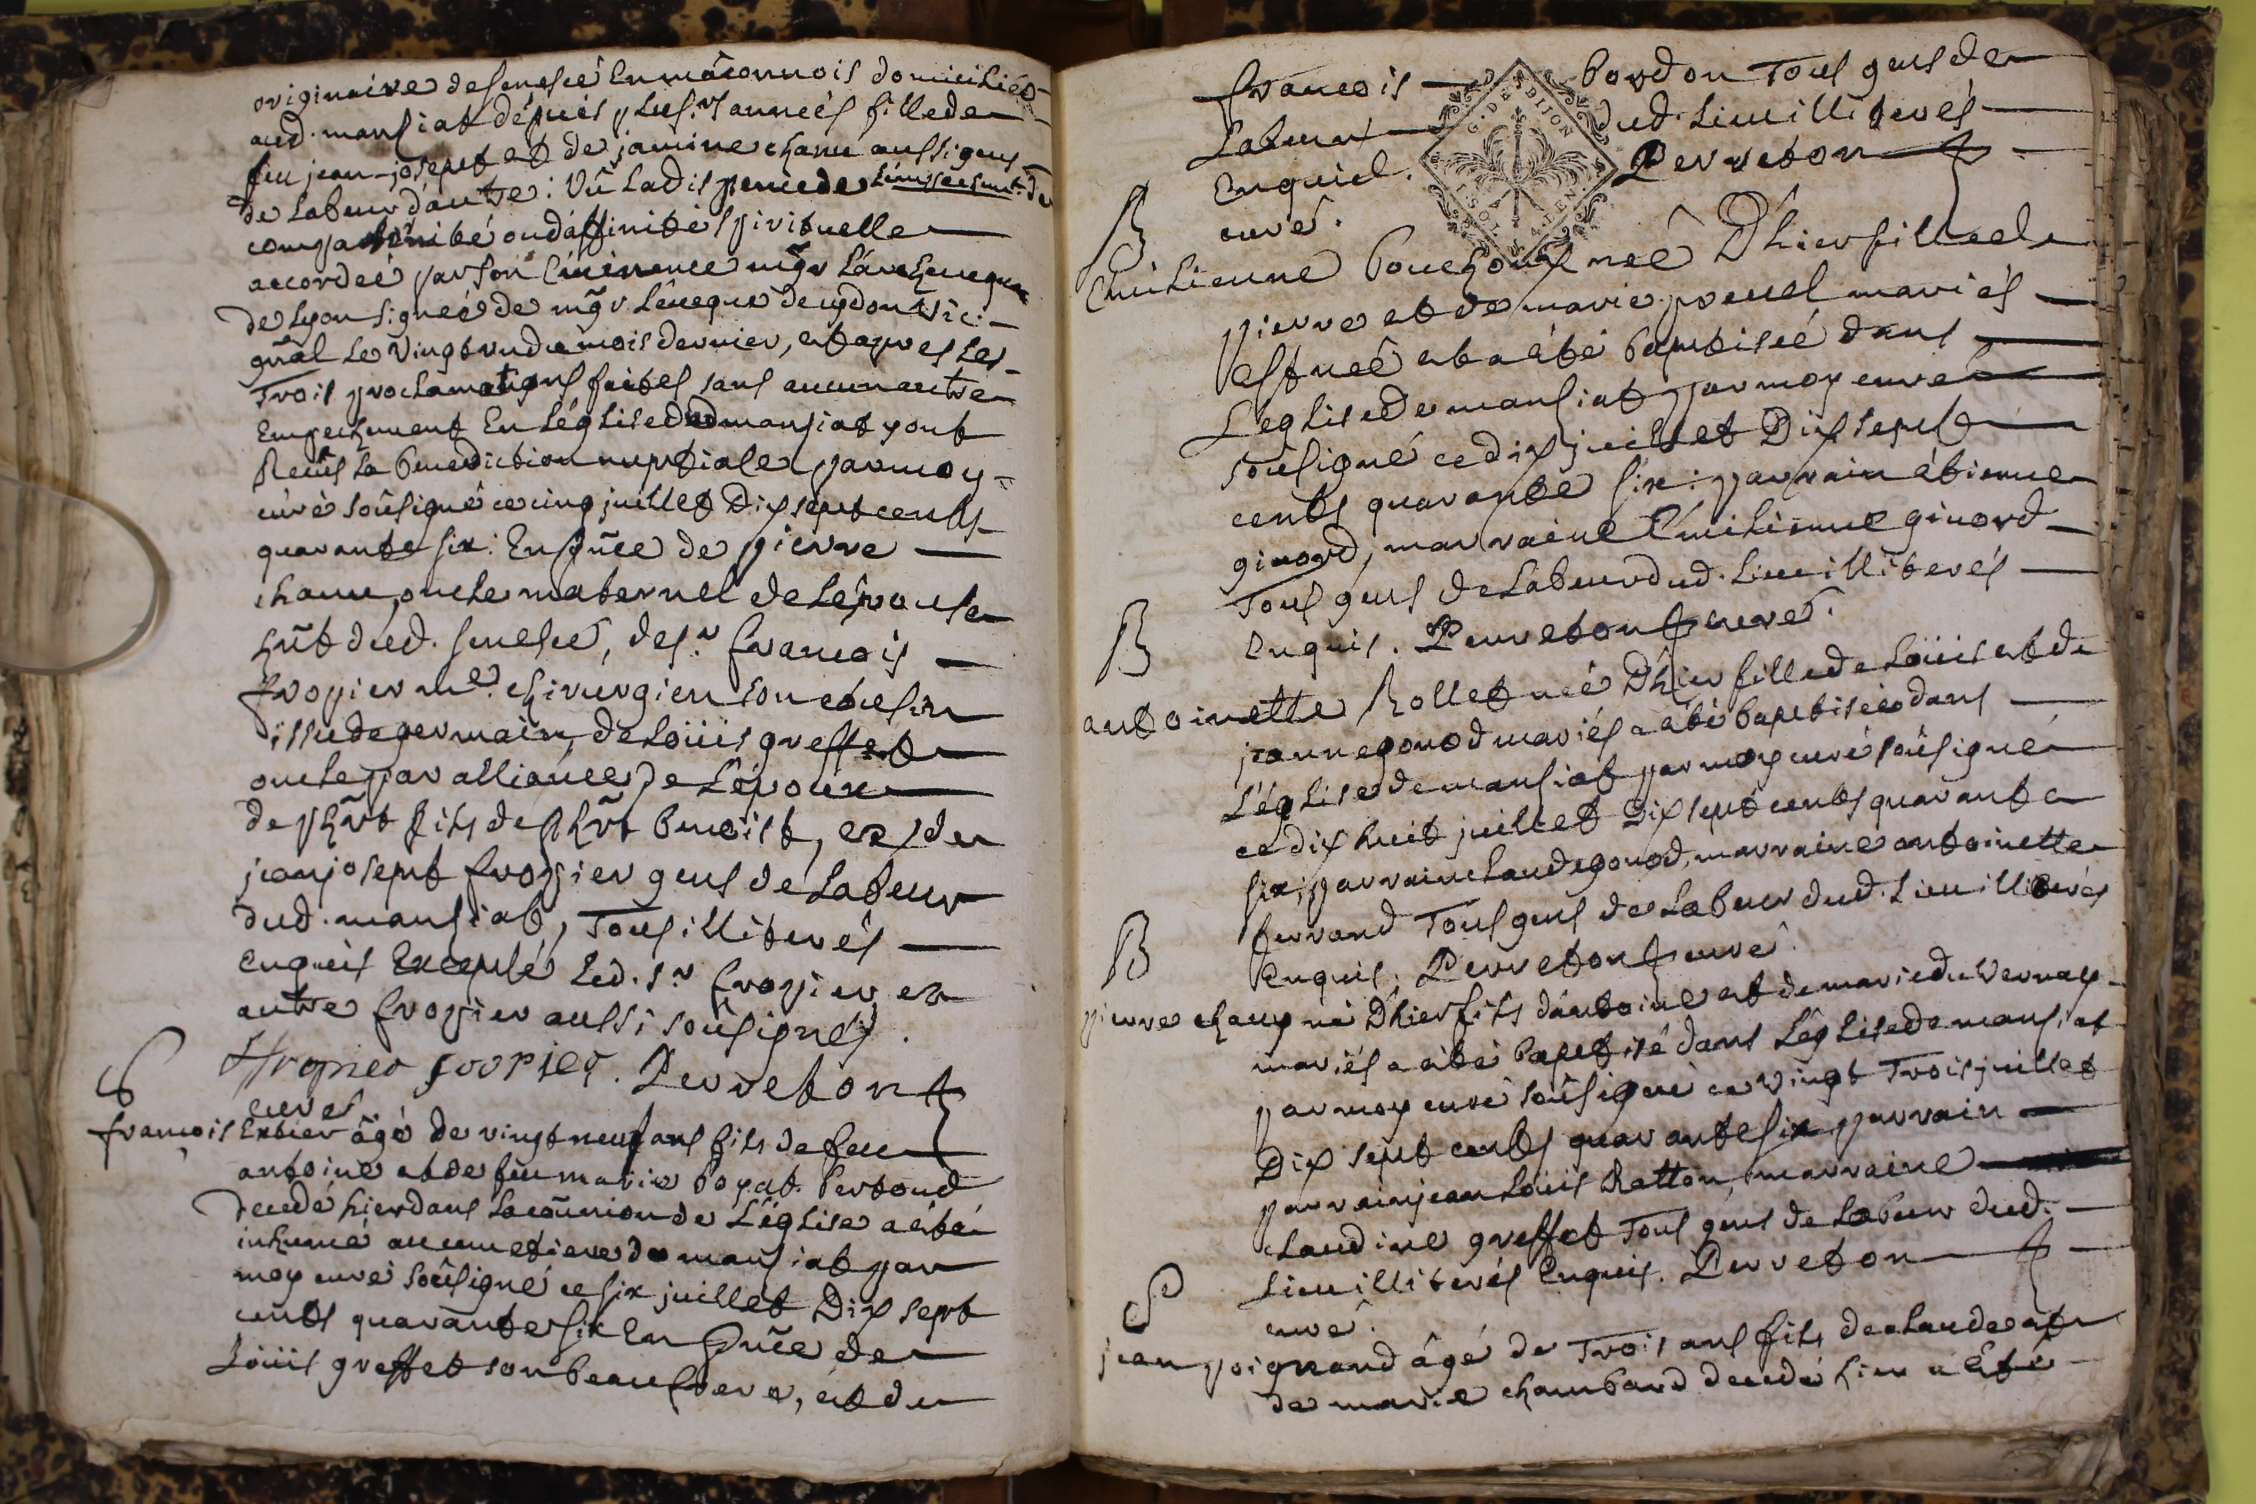 originaire de senescé en mâconnois domiciliée
aud. mansiat dépuis plus.rs années fille de
feu jean-josepht et de janine chanu aussi gens
de labeur d'autre: Vû la dispence de
ou d'affinité spirituelle
accordeé par son Éminence mg̃r L'archeveque
de Lyon signeé de mg̃r L'êveque de
gñal le vingt un du mois dernier, et apres les
Trois proclamations faites sans aucun autre
Empechement En L'église dud mansiat y ont
Reçûs la benediction nuptiale par moy
curé soûsigné ce cinq juillet Dix sept cents
quarante six: En pñce de pierre
chanu, oncle maternel de L'épouse
hñt dud. senescé, de s.r françois
fropier me. chirurgien son cousin
issu de germain, de Loüis greffet
oncle par alliance de L'époux
de phr̃t fils de phr̃t benoist, et de
jean josepht fropier gens de labeur
dud. mansiat, Tous illiterés
enquis Excepté led. s.r fropier et
autre fropier aussi soûsignés.
fropier froPier. Perreton
curé
S
françois Extier âgé de vingt neuf ans fils de feu
antoine et de feu marie boyat bertoud
decedé hier dans la cõmunion de L'église a été
inhumé au cimetiere de mansiat par
moy curé soûsigné ce six juillet Dix sept
cents quarante six En pñce de
Loüis greffet son beaufrere, et de
françois bordon Tous gens de
Labeur dud. Lieu illiterés
Enquid. Perreton
curé.
G. DE DIJON
B
Emilienne bouchoux neé D'hier fille de
pierre et de marie preuel mariés
est neé et a été baptiseé dans
L'eglise de mansiat par moy curé
soûsigné ce dix juillet Dix sept
cents quarante six: parrain étienne
ginord, marraine Emilienne ginord
Tous gens de Labeur dud. Lieu illiterés
enquis. Perreton curé.
B
antoinette Rollet neé D'hier fille de Loüis et de
jeanne gonod mariés a été baptiseé dans
L'église de mansiat par moy curé soûsigné
ce dix huit juillet Dix sept cents quarante
six, parrain claude gonod, marraine antoinette
ferrand Tous gens de Labeur dud. Lieu illiterés
enquis; Perreton curé.
B
pierre chapy né D'hier fils d'antoine et de marie du vernay
mariés a été baptisé dans L'église de mansiat
par moy curé soûsigné ce vingt Trois juillet
Dix sept cents quarante six parrain
parrain jean Loüis Ratton, marraine
claudine greffet Tous gens de Labeur dud.
Lieu illiterés Enquis. Perreton
curé.
S
jean poignand âgé de Trois ans fils de claude et
de marie chambard decedé hier a été